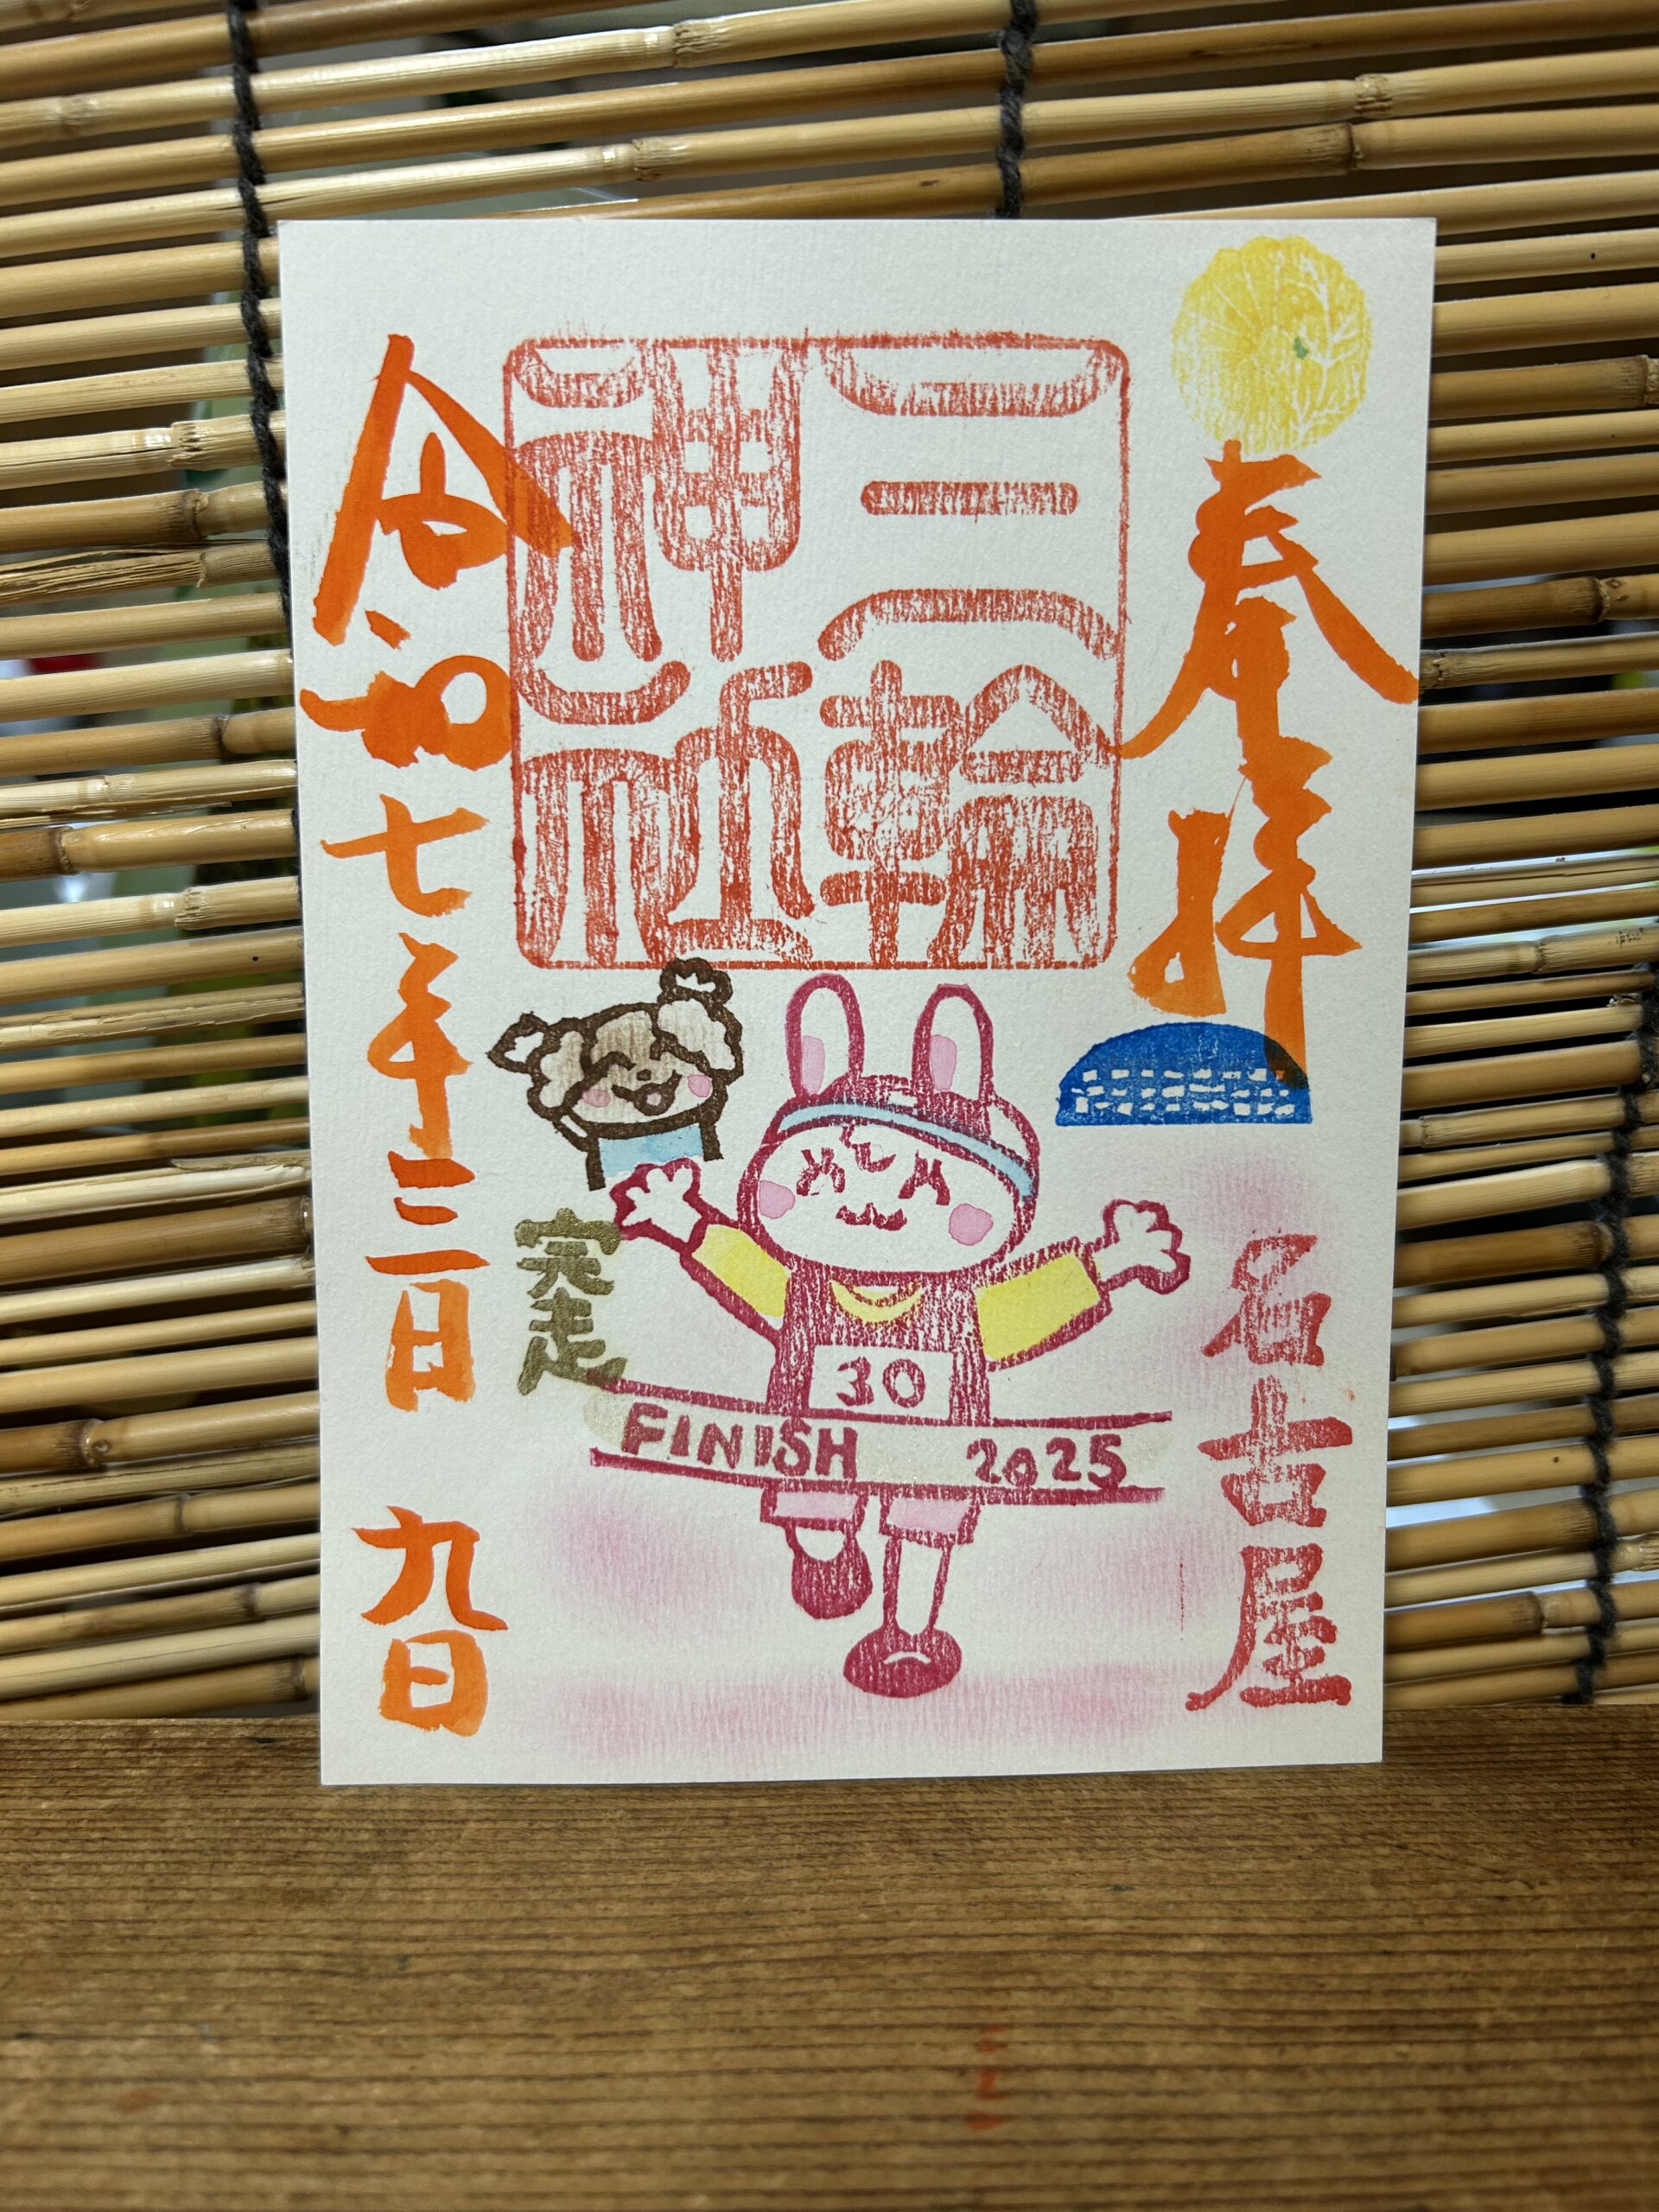 奉拝
名古屋
三輪
神社
完走
30
FINISH 2025
令和七年三月九日